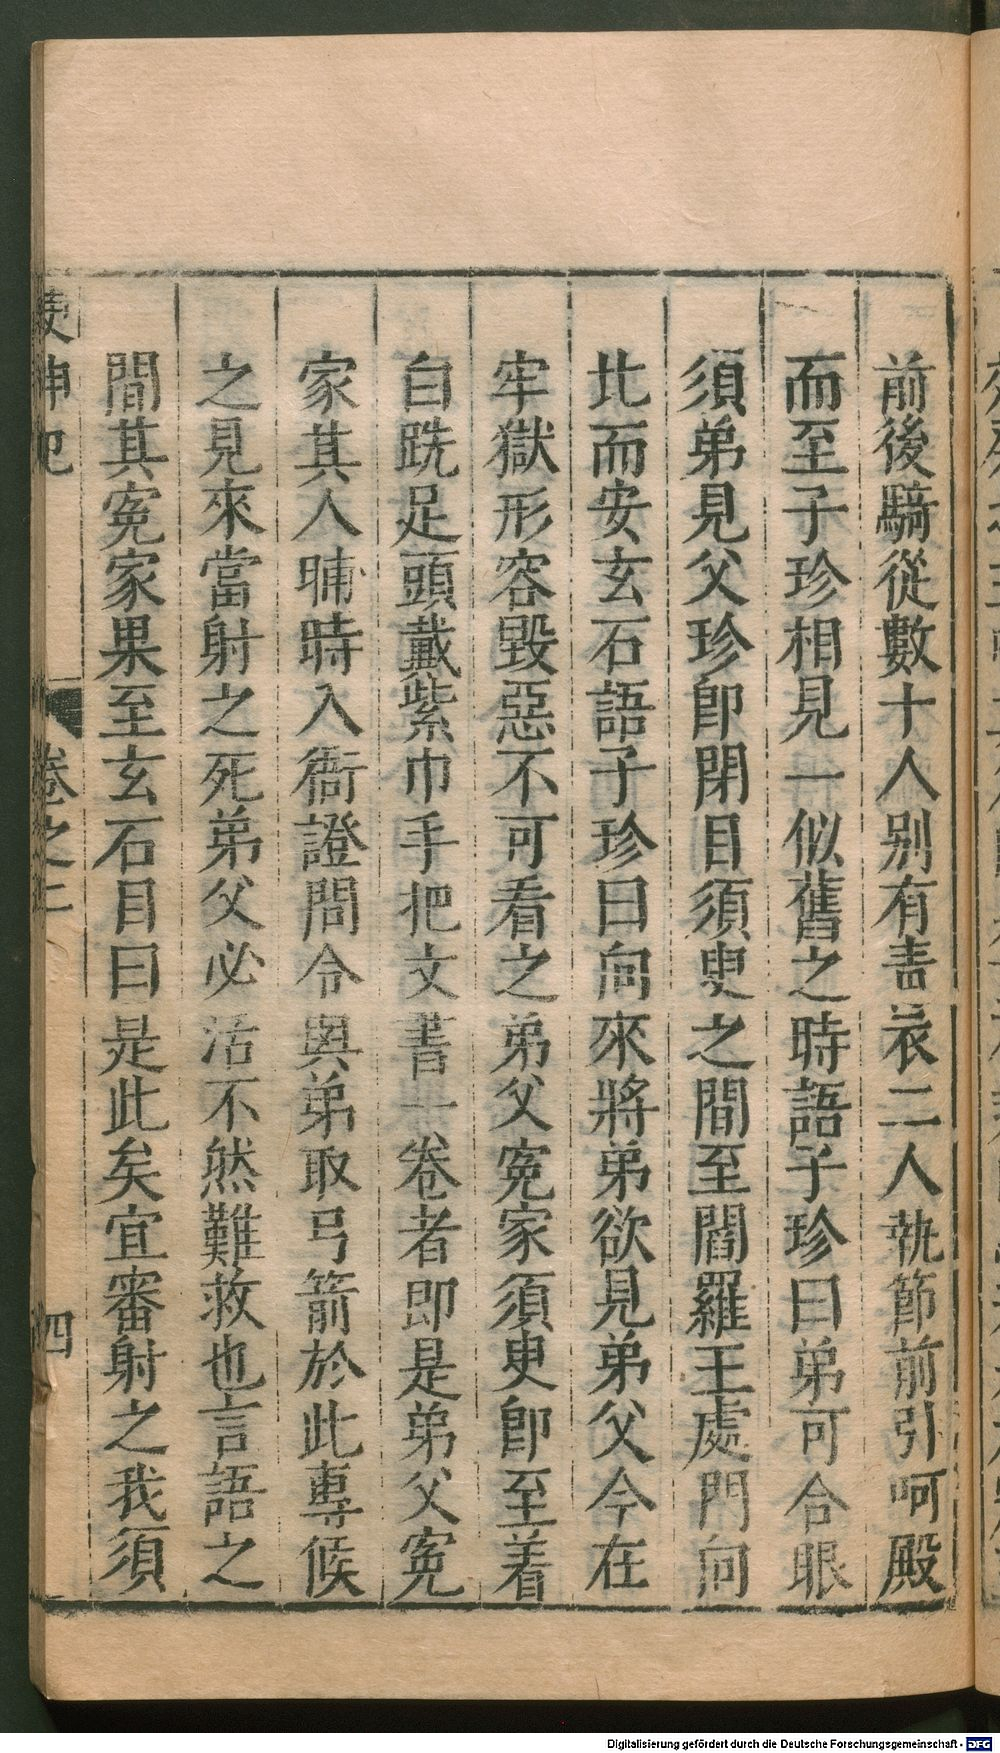 前後騎從數十人别有青衣二人執節前引呵殿
而至子珍相見一似舊之時語子珍曰弟可合眼
須弟見父珍卽閉目須臾之間至閻羅王處門向
北而安玄石語子珍曰向來將弟欲見弟父今在
牢獄形容毀惡不可看之弟父寃家須臾卽至着
自跣足頭戴紫巾手把文書一卷者即是弟父寃
家其人晡時入衙證問令與弟取弓箭於此專候
之見來當射之死弟父必活不然難救也言語之
間其寃家果至玄石目曰是此矣宜審射之我須
卷之二
四
Digitalisierung gefördert durch die Deutsche Forschungsgemeinschaft - DFG